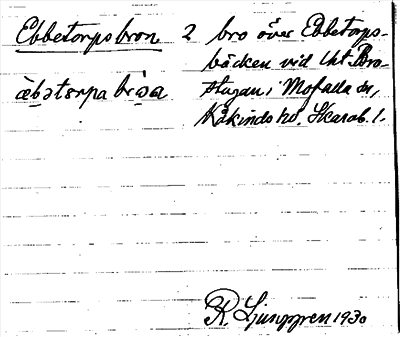 Ebbetorpsbron 2 bro över Ebbetorps-
bäcken vid lht. Bro-
æbətɔrpa bròɑ stugan i Mofalla sn,
Kåkinds hd, Skarab. l.
R. Ljunggren 1930